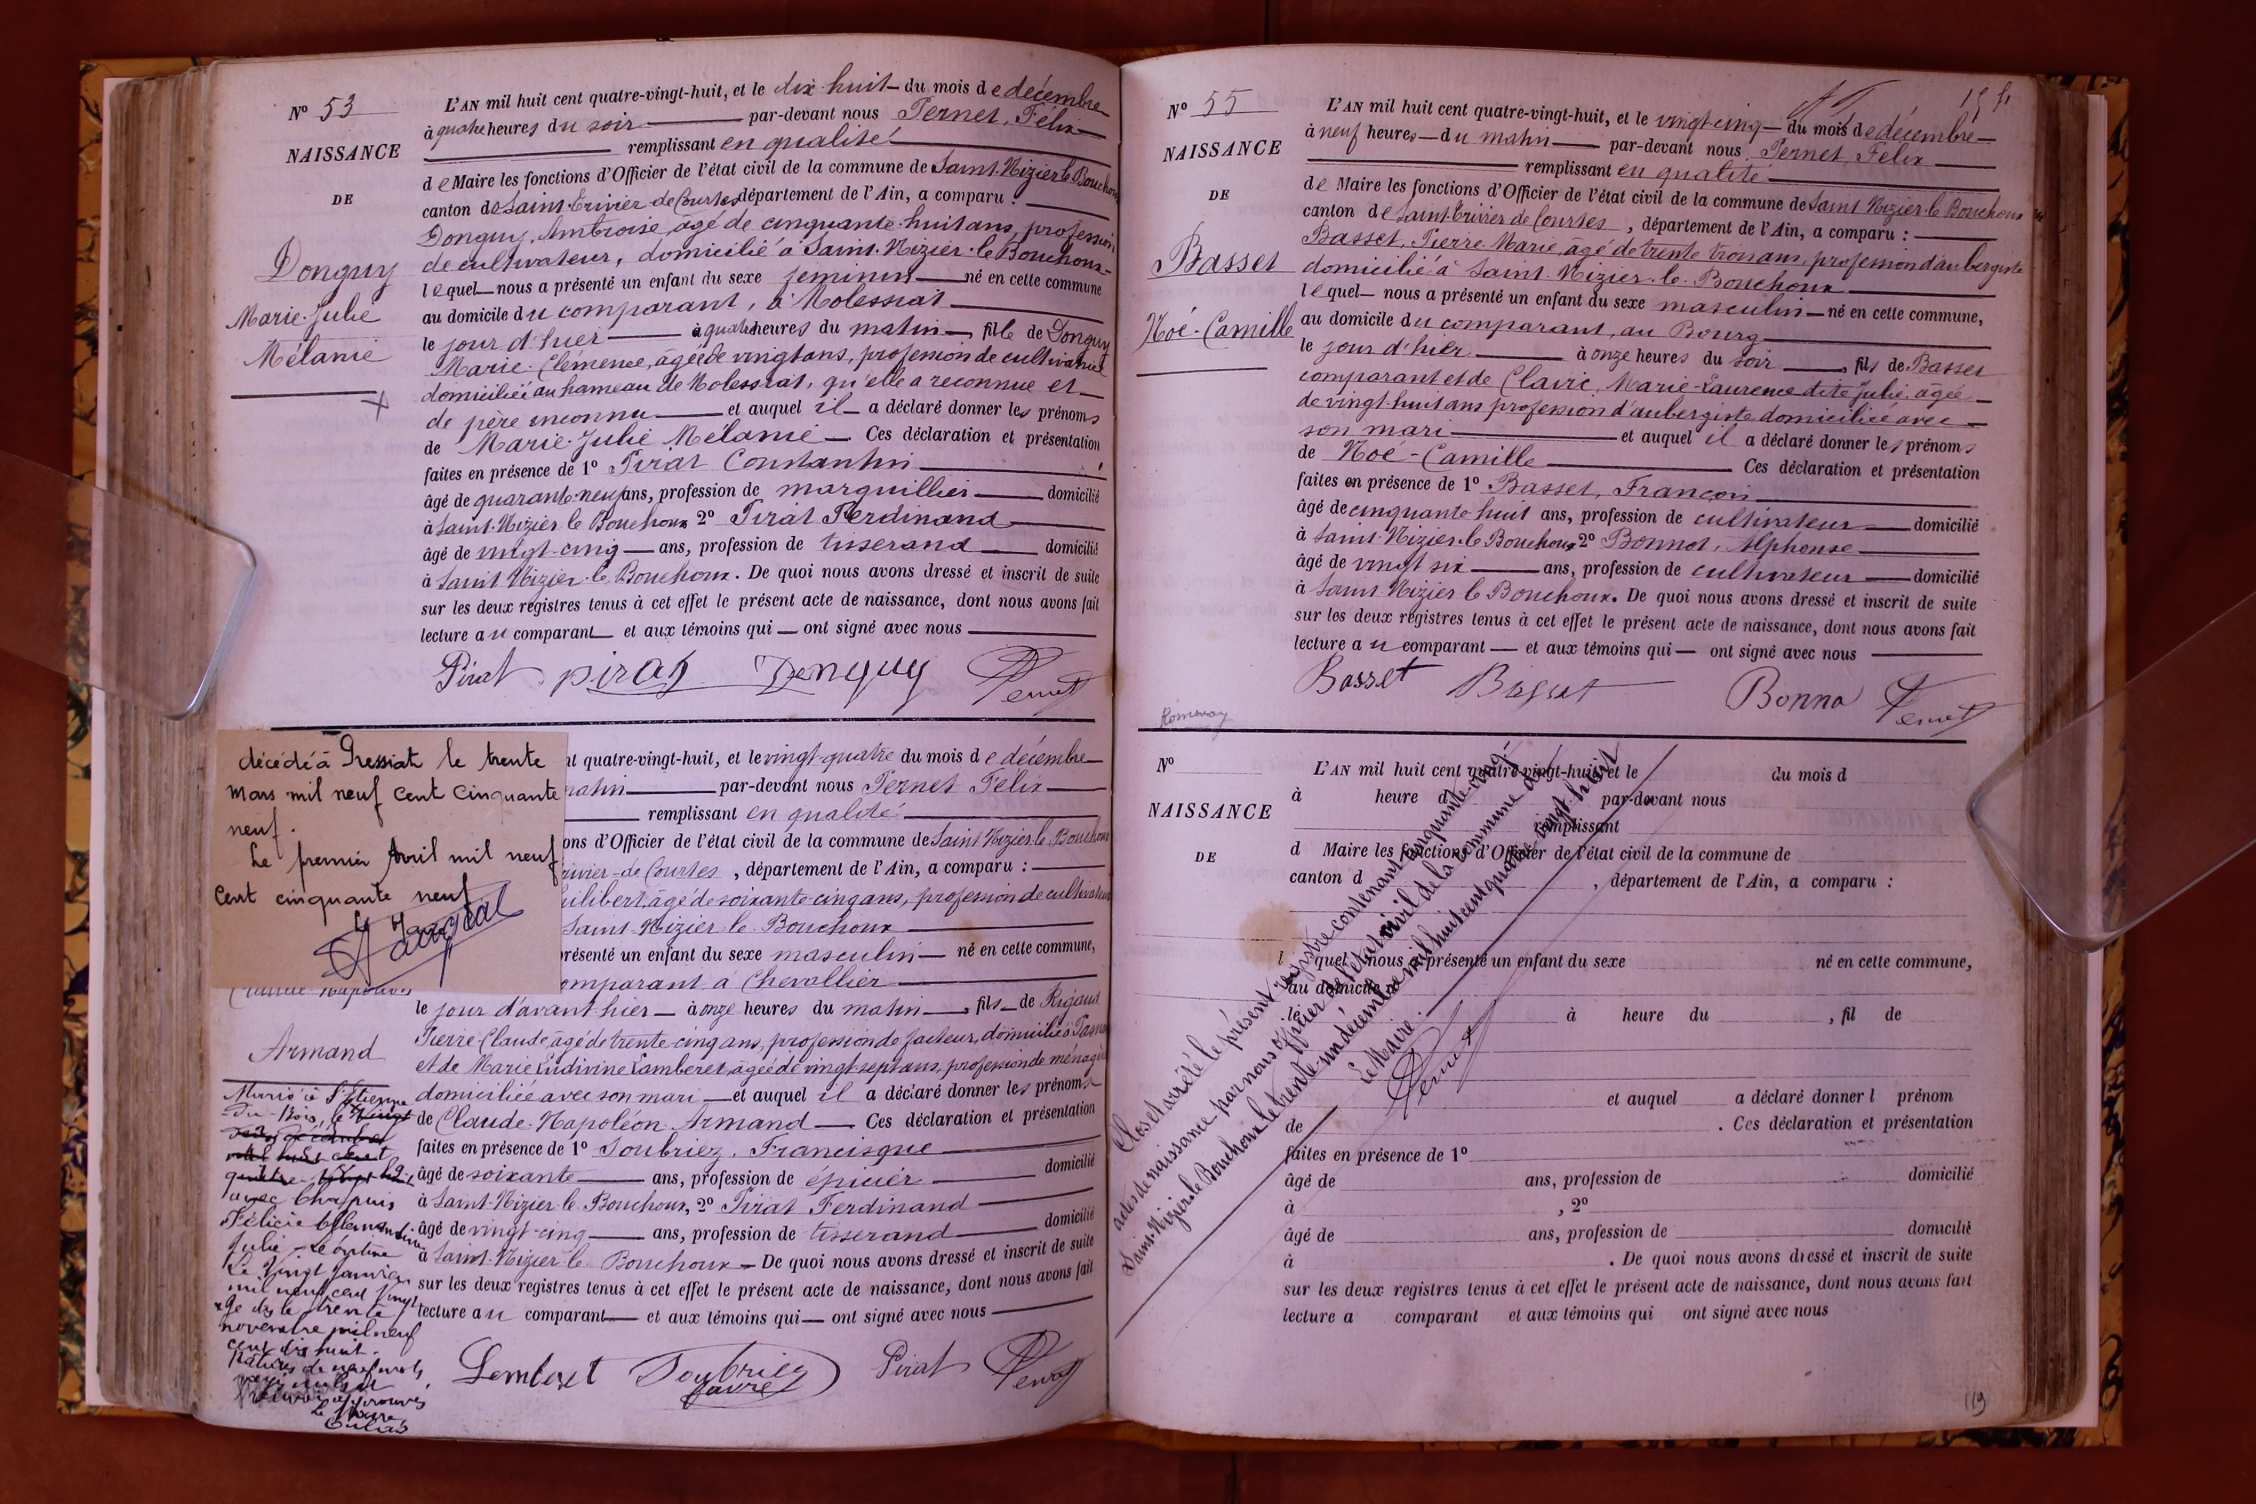 N° 53
NAISSANCE
DE
Donguy
Marie-Julie
Mélanie
L'AN mil huit cent quatre-vingt-huit, et le dix-huit du mois de décembre
à quatre heures du soir par-devant nous Pernet, Félix
remplissant en qualité
de Maire les fonctions d'Officier de l'état civil de la commune de Saint-Nizier-le-Bouchoux
canton de Saint-Trivier-de-Courtes département de l'Ain, a comparu :
Donguy, Ambroise, âgé de cinquante-huit ans, profession
de cultivateur, domicilié à Saint-Nizier-le-Bouchoux
lequel nous a présenté un enfant du sexe féminin né en cette commune
au domicile du comparant, à Molessiat
le jour d'hier à quatre heures du matin, fille de Donguy
Marie-Clémence, âgée de vingt ans, profession de cultivatrice
domiciliée au hameau de Molessiat, qu'elle a reconnue et
de père inconnu et auquel il a déclaré donner les prénoms
de Marie-Julie Mélanie. Ces déclaration et présentation
faites en présence de 1° Pirat Constantin
âgé de quarante-neuf ans, profession de marguillier domicilié
à Saint-Nizier-le-Bouchoux 2° Pirat Ferdinand
âgé de vingt-cinq ans, profession de tisserand domicilié
à Saint-Nizier-le-Bouchoux. De quoi nous avons dressé et inscrit de suite
sur les deux registres tenus à cet effet le présent acte de naissance, dont nous avons fait
lecture au comparant et aux témoins qui ont signé avec nous
Pirat pirat Donguy Pernet
décédé à Pressiat le trente
mars mil neuf cent cinquante
neuf.
Le premier Avril mil neuf
cent cinquante neuf
Claude-Napoléon
Armand
Marié à St Etienne
du-Bois, le vingt
avec Chapuis
Félicie
Julie-Léontine
le vingt janvier
mil neuf cent vingt
novembre mil neuf
cent dix huit.
Le Maire
nt quatre-vingt-huit, et le vingt-quatre du mois de décembre
matin par-devant nous Pernet Félix
remplissant en qualité
ons d'Officier de l'état civil de la commune de Saint-Nizier-le-Bouchoux
rivier-de-Courtes, département de l'Ain, a comparu :
ilibert, âgé de soixante-cinq ans, profession de cultivateur
Saint-Nizier-le-Bouchoux
présenté un enfant du sexe masculin né en cette commune,
omparant à Chevallier
le jour d'avant-hier à onze heures du matin, fils de Rigaud
Pierre-Claude, âgé de trente-cinq ans, profession de facteur, domicilié à
et de Marie Ludivine Lamberet, âgée de vingt-sept ans, profession de ménagère
domiciliée avec son mari et auquel il a déclaré donner les prénoms
de Claude-Napoléon Armand. Ces déclaration et présentation
faites en présence de 1° Soubriez, Francisque
âgé de soixante ans, profession de épicier domicilié
à Saint-Nizier-le-Bouchoux, 2° Pirat Ferdinand
âgé de vingt-cinq ans, profession de tisserand domicilié
à Saint-Nizier-le-Bouchoux. De quoi nous avons dressé et inscrit de suite
sur les deux registres tenus à cet effet le présent acte de naissance, dont nous avons fait
lecture au comparant et aux témoins qui ont signé avec nous
Lemberet Soubriez Pirat Pernet
N° 55
NAISSANCE
DE
Basset
Noé-Camille
L'AN mil huit cent quatre-vingt-huit, et le vingt-cinq du mois de décembre
à neuf heures du matin par-devant nous Pernet, Félix
remplissant en qualité
de Maire les fonctions d'Officier de l'état civil de la commune de Saint-Nizier-le-Bouchoux
canton de Saint-Trivier-de-Courtes, département de l'Ain, a comparu :
Basset, Pierre-Marie, âgé de trente-trois ans, profession d'aubergiste
domicilié à Saint-Nizier-le-Bouchoux
lequel nous a présenté un enfant du sexe masculin né en cette commune,
au domicile du comparant, au Bourg
le jour d'hier à onze heures du soir, fils de Basset
comparant et de Clavic, Marie-Laurence dite Julie, âgée
de vingt-huit ans profession d'aubergiste domiciliée avec
son mari et auquel il a déclaré donner les prénoms
de Noé-Camille Ces déclaration et présentation
faites en présence de 1° Basset, François
âgé de cinquante-huit ans, profession de cultivateur domicilié
à Saint-Nizier-le-Bouchoux 2° Bonnot, Alphonse
âgé de vingt-six ans, profession de cultivateur domicilié
à Saint-Nizier-le-Bouchoux. De quoi nous avons dressé et inscrit de suite
sur les deux registres tenus à cet effet le présent acte de naissance, dont nous avons fait
lecture au comparant et aux témoins qui ont signé avec nous
Basset Basset Bonno Pernet
Romenay
N°
NAISSANCE
DE
L'AN mil huit cent quatre-vingt-huit, et le du mois d
à heure d par-devant nous
remplissant
d Maire les fonctions d'Officier de l'état civil de la commune de
canton d , département de l'Ain, a comparu :
l quel nous a présenté un enfant du sexe né en cette commune,
au domicile
le à heure du , fil de
et auquel a déclaré donner l prénom
de . Ces déclaration et présentation
faites en présence de 1°
âgé de ans, profession de domicilié
à , 2°
âgé de ans, profession de domicilié
à . De quoi nous avons dressé et inscrit de suite
sur les deux registres tenus à cet effet le présent acte de naissance, dont nous avons fait
lecture a comparant et aux témoins qui ont signé avec nous
Clos et arrêté le présent registre contenant cinquante-cinq
actes de naissance par nous officier de l'état civil de la commune de
Saint-Nizier-le-Bouchoux le trente-un décembre mil huit cent quatre-vingt-huit
Le Maire.
Pernet
119